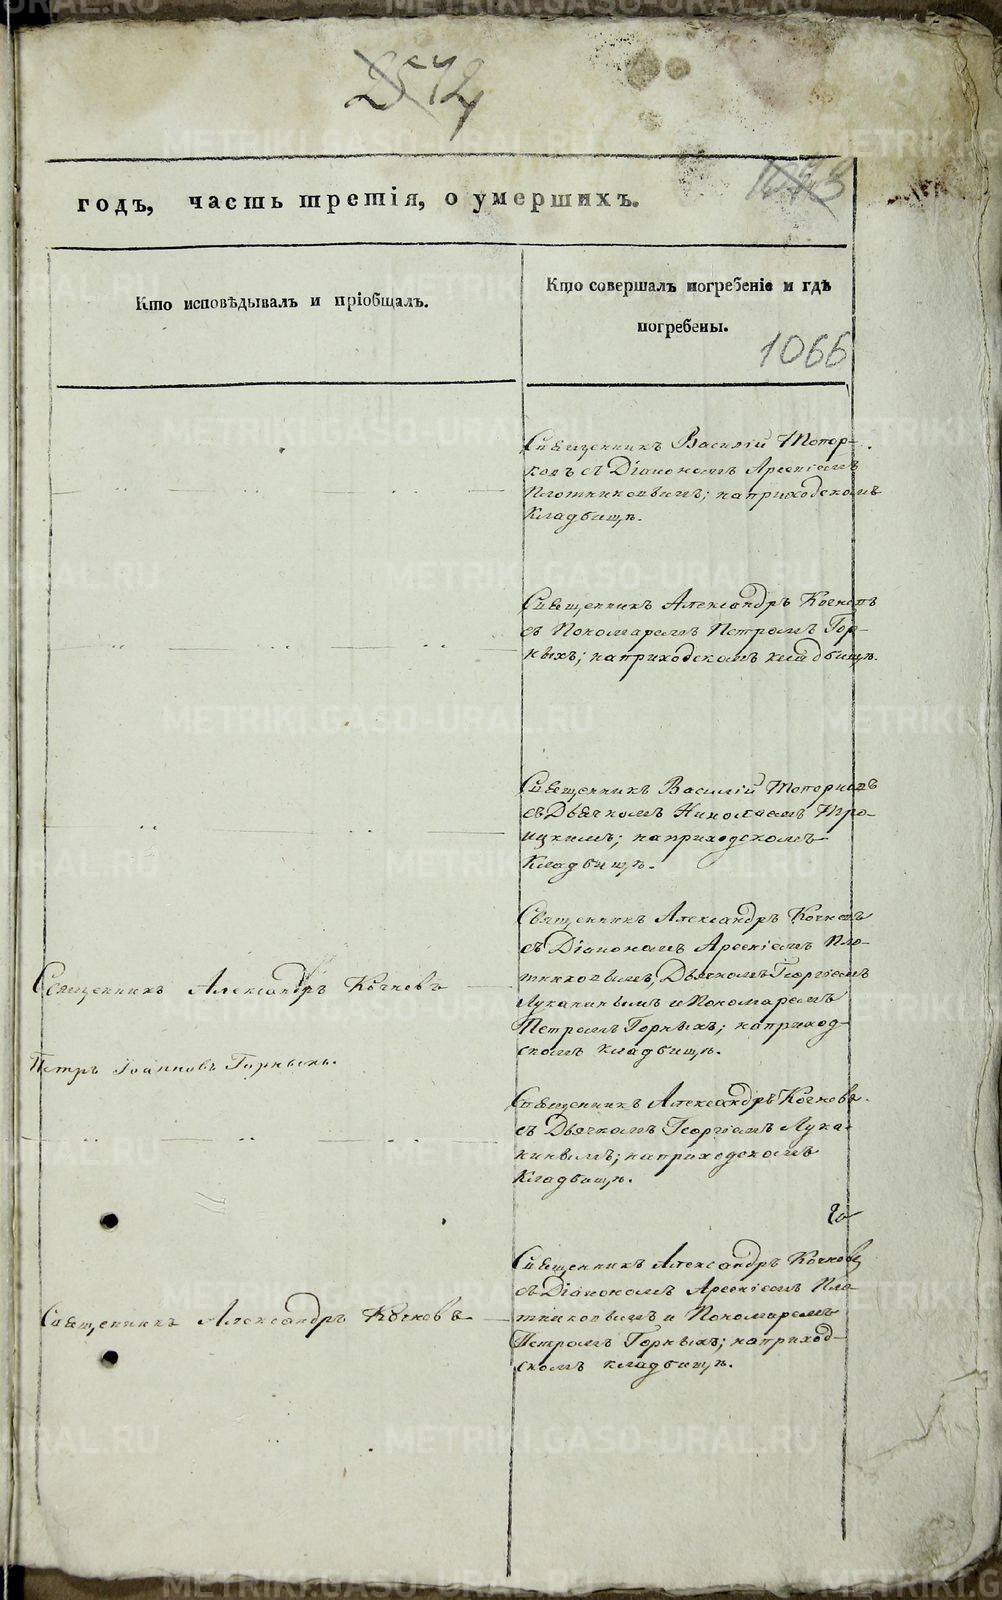 2572
годъ, часть третія, о умершихъ.
Кто исповѣдывалъ и пріобщалъ.
Кто совершалъ погребеніе и гдѣ
погребены.
1066
Священникъ Василій Топор-
ковъ съ Діакономъ Арсеніемъ
Плотниковымъ; на приходскомъ
Кладбищѣ.
Священникъ Александръ Кочневъ
съ Пономаремъ Петромъ Гор-
ныхъ; на приходскомъ кладбищѣ.
Священникъ Василій Топорковъ
съ Дьячкомъ Николаемъ Тро-
ицкимъ; на приходскомъ
Кладбищѣ.
Священникъ Александръ Кочневъ
Священникъ Александръ Кочневъ
съ Діакономъ Арсеніемъ Пло-
тниковымъ, Дьячкомъ Георгіемъ
Луканинымъ и Пономаремъ
Петромъ Горныхъ; на приход-
скомъ кладбищѣ.
Петръ Іоанновъ Горныхъ.
Священникъ Александръ Кочневъ
съ Дьячкомъ Георгіемъ Лука-
нинымъ; на приходскомъ
Кладбищѣ.
Священникъ Александръ Кочневъ
Священникъ Александръ Кочневъ
съ Діакономъ Арсеніемъ Пло-
тниковымъ и Пономаремъ
Петромъ Горныхъ; на приход-
скомъ кладбищѣ.
METRIKI.GASO-URAL.RU